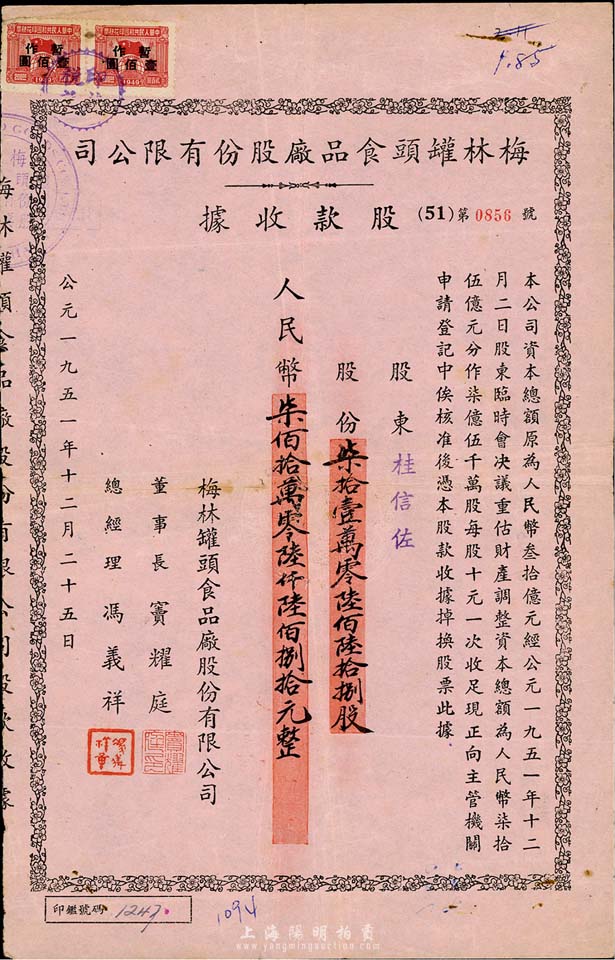 中華人民共和國印花稅票
暫作
壹佰圓
1949
中華人民共和國印花稅票
暫作
壹佰圓
1949
1.85
梅林罐頭食品廠股份有限公司
股款收據
(51)第0856號
本公司資本總額原為人民幣叁拾億元經公元一九五一年十二
月二日股東臨時會決議重估財產調整資本總額為人民幣柒拾
伍億元分作柒億伍千萬股每股十元一次收足現正向主管機關
申請登記中俟核准後憑本股款收據掉換股票此據
股東桂信佐
股份柒拾壹萬零陸佰陸拾捌股
人民幣柒佰拾萬零陸仟陸佰捌拾元整
梅林罐頭食品廠股份有限公司
董事長竇耀庭
總經理馮義祥
公元一九五一年十二月二十五日
梅林罐頭食品廠股份有限公司股款收據
印鑑號碼 1247
1094
上海陽明拍賣
www.yangmingauction.com